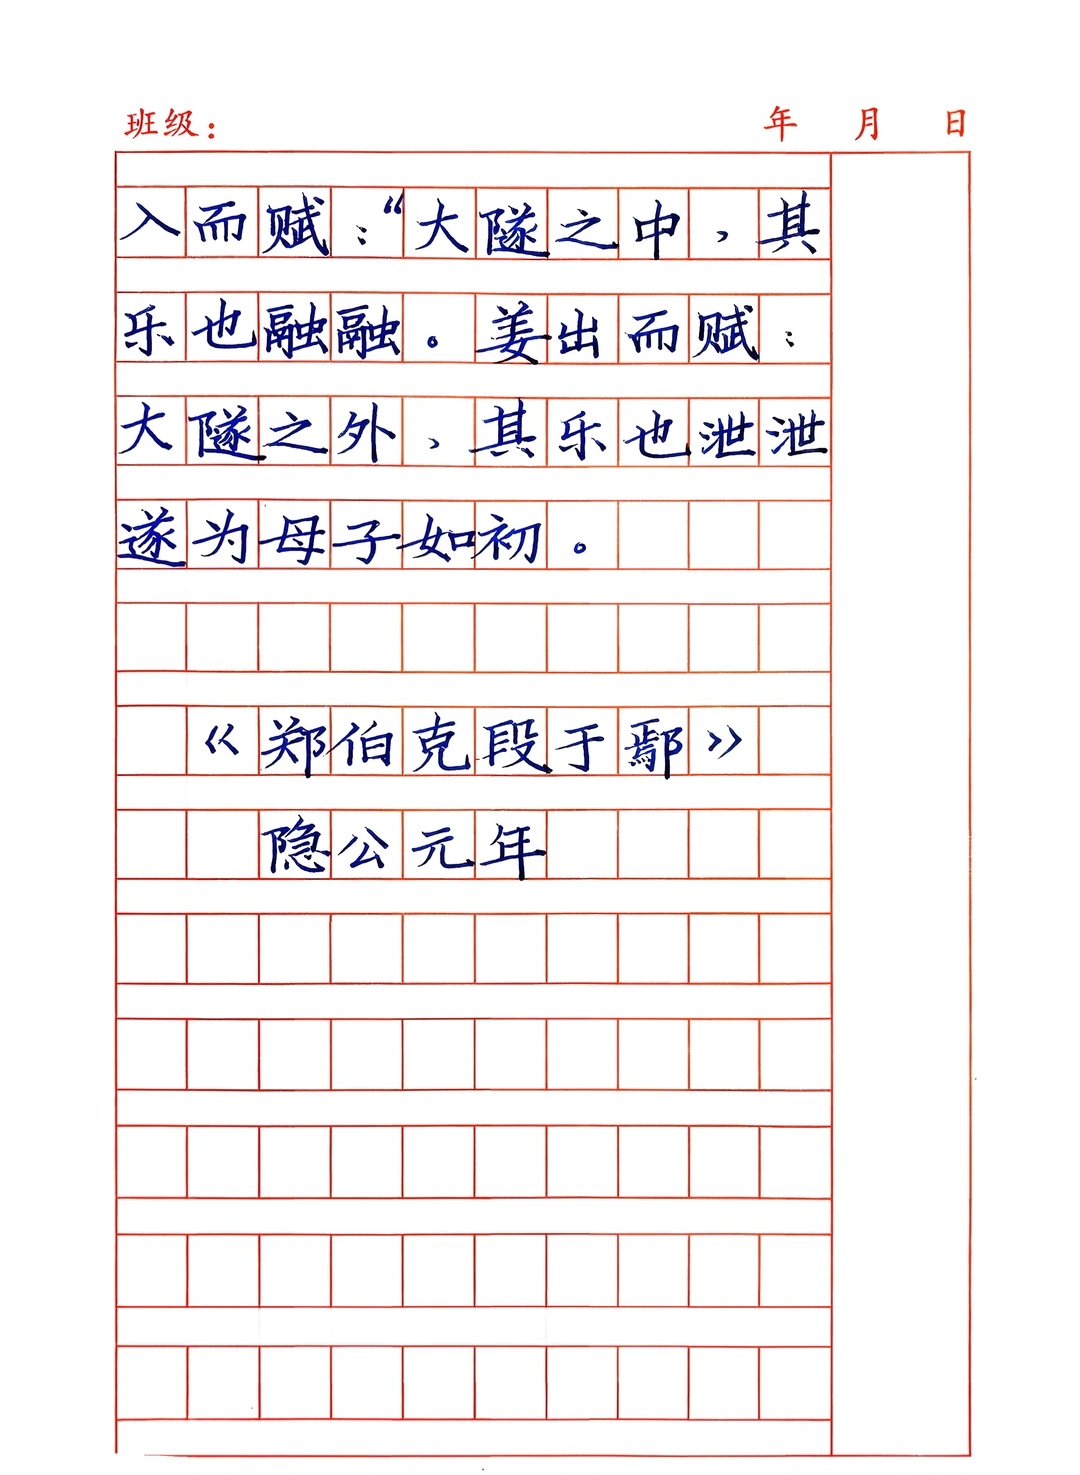 班级： 年 月 日
入而赋：“大隧之中，其
乐也融融。姜出而赋：
大隧之外，其乐也泄泄
遂为母子如初。
《郑伯克段于鄢》
隐公元年